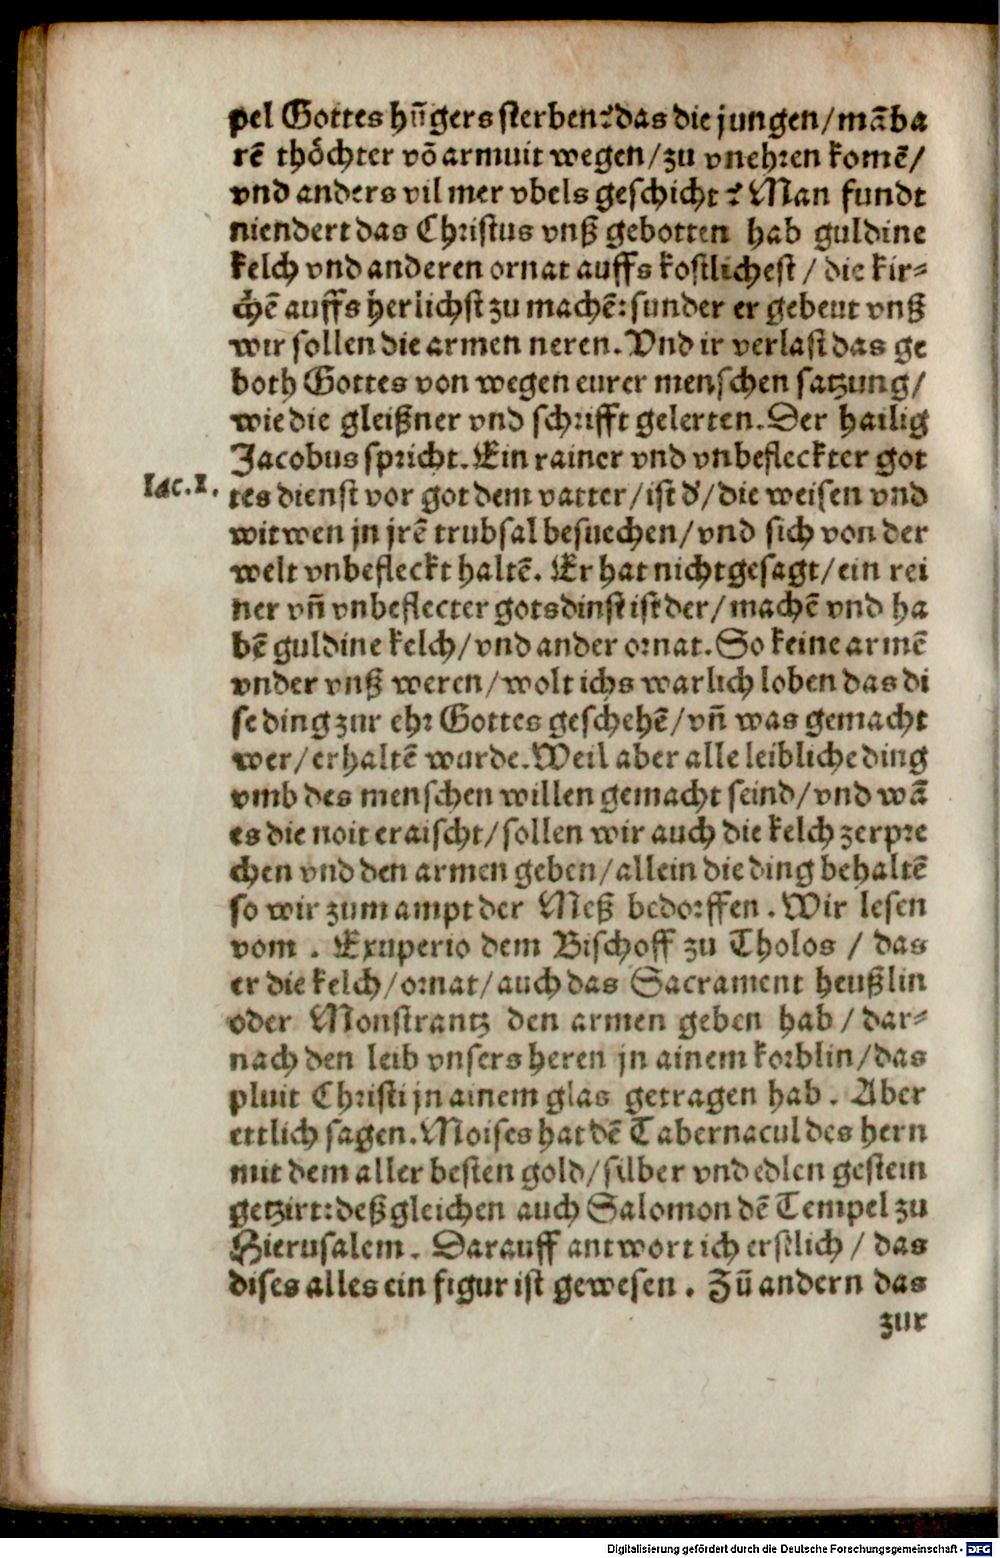 pel Gottes hūgers sterben? das die jungen/māba
rē thöchter vō armuit wegen/zu vnehren komē/
vnd anders vil mer vbels geschicht? Man fundt
niendert das Christus vnß gebotten hab guldine
kelch vnd anderen ornat auffs kostlichest / die kir⸗
chē auffs herlichst zu machē: sunder er gebeut vnß
wir sollen die armen neren. Vnd ir verlast das ge
both Gottes von wegen eurer menschen satzung/
wie die gleißner vnd schrifft gelerten. Der hailig
Jacobus spricht. Ein rainer vnd vnbefleckter got
Iac.1. tes dienst vor got dem vatter/ist d'/die weisen vnd
witwen jn jrē trubsal besuechen/vnd sich von der
welt vnbefleckt haltē. Er hat nicht gesagt/ein rei
ner vñ vnbeflecter gotsdinst ist der/machē vnd ha
bē guldine kelch/vnd ander ornat. So keine armē
vnder vnß weren/wolt ichs warlich loben das di
se ding zur ehr Gottes geschehē/vñ was gemacht
wer/erhaltē wurde. Weil aber alle leibliche ding
vmb des menschen willen gemacht seind/vnd wā
es die noit eraischt/sollen wir auch die kelch zerpre
chen vnd den armen geben/allein die ding behaltē
so wir zum ampt der Meß bedorffen. Wir lesen
vom . Exuperio dem Bischoff zu Tholos / das
er die kelch/ornat/auch das Sacrament heußlin
oder Monstrantz den armen geben hab / dar⸗
nach den leib vnsers heren jn ainem korblin/das
pluit Christi jn ainem glas getragen hab. Aber
ettlich sagen. Moises hat dē Tabernacul des hern
mit dem aller besten gold/silber vnd edlen gestein
getzirt: deßgleichen auch Salomon dē Tempel zu
Hierusalem. Darauff antwort ich erstlich / das
dises alles ein figur ist gewesen. Zū andern das
zur
Digitalisierung gefördert durch die Deutsche Forschungsgemeinschaft - DFG